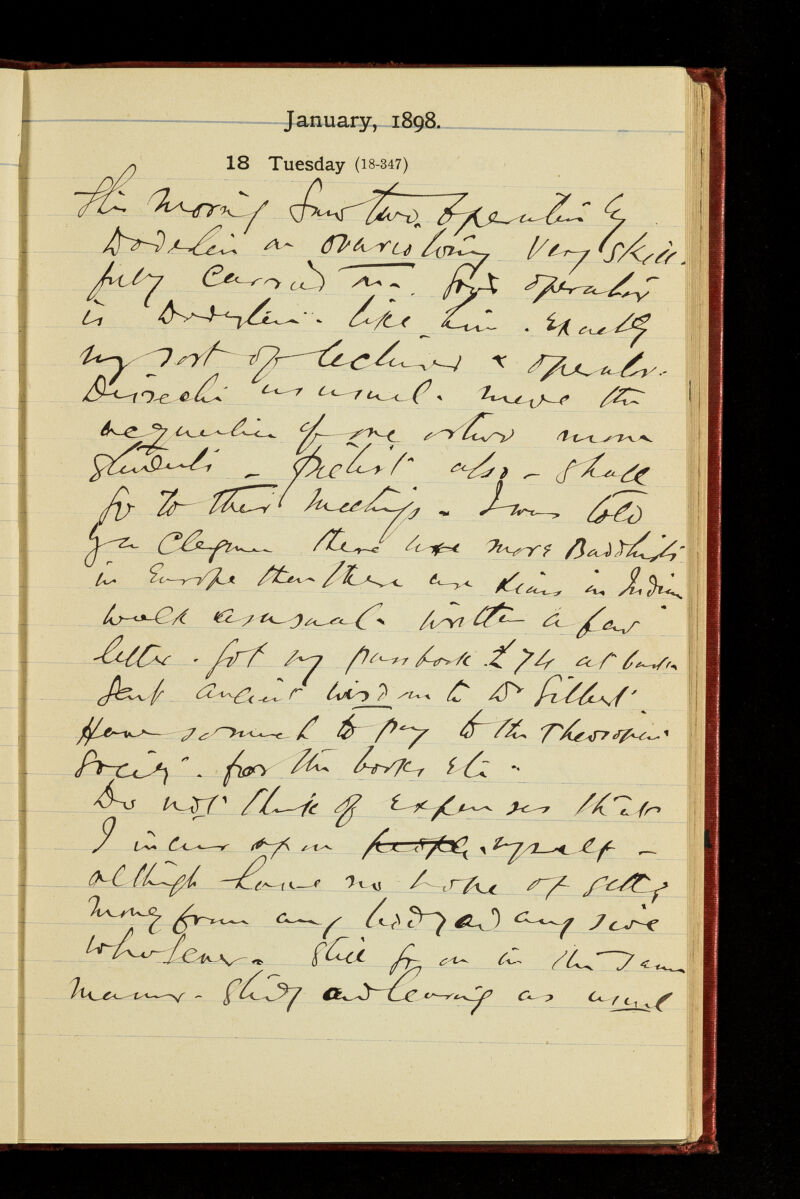 January, 1898.
18 Tuesday (18-347)
This morning saw two operation by
Doderlein an ovariotomy very skill-
fully carried on. Good operator
is Doderlein. like him. Exactly
my sort of lecturer & operator.
Dissecting as usual. made the
acquaintance of one or two more
students - also - shall
go to their meetings - I was told
by a Clegman there are more Buddhists
in Europe than there are in India
walk as usual. written a few
letter. Got my passbook £74 at bank
sent ancient wisdom to Dr Gilbert
Have so much to pay to the Theosophical
Society. for the books etc.
Do not think of expenses that
I incur upon people. myself -
although have no hope of getting
money from any body and any side
whatsoever. Still go on in the same
manner. Study and learning as usual